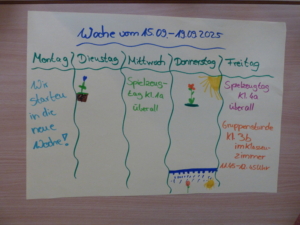 Woche vom 15.09.-19.09.2025
Montag
Dienstag
Mittwoch
Donnerstag
Freitag
Wir
starten
in die
neue
Woche!
Spielzeug-
tag Kl. 1c
überall
Spielzeugtag
Kl. 4a
überall
Gruppenstunde
Kl. 3b
im Klassen-
zimmer